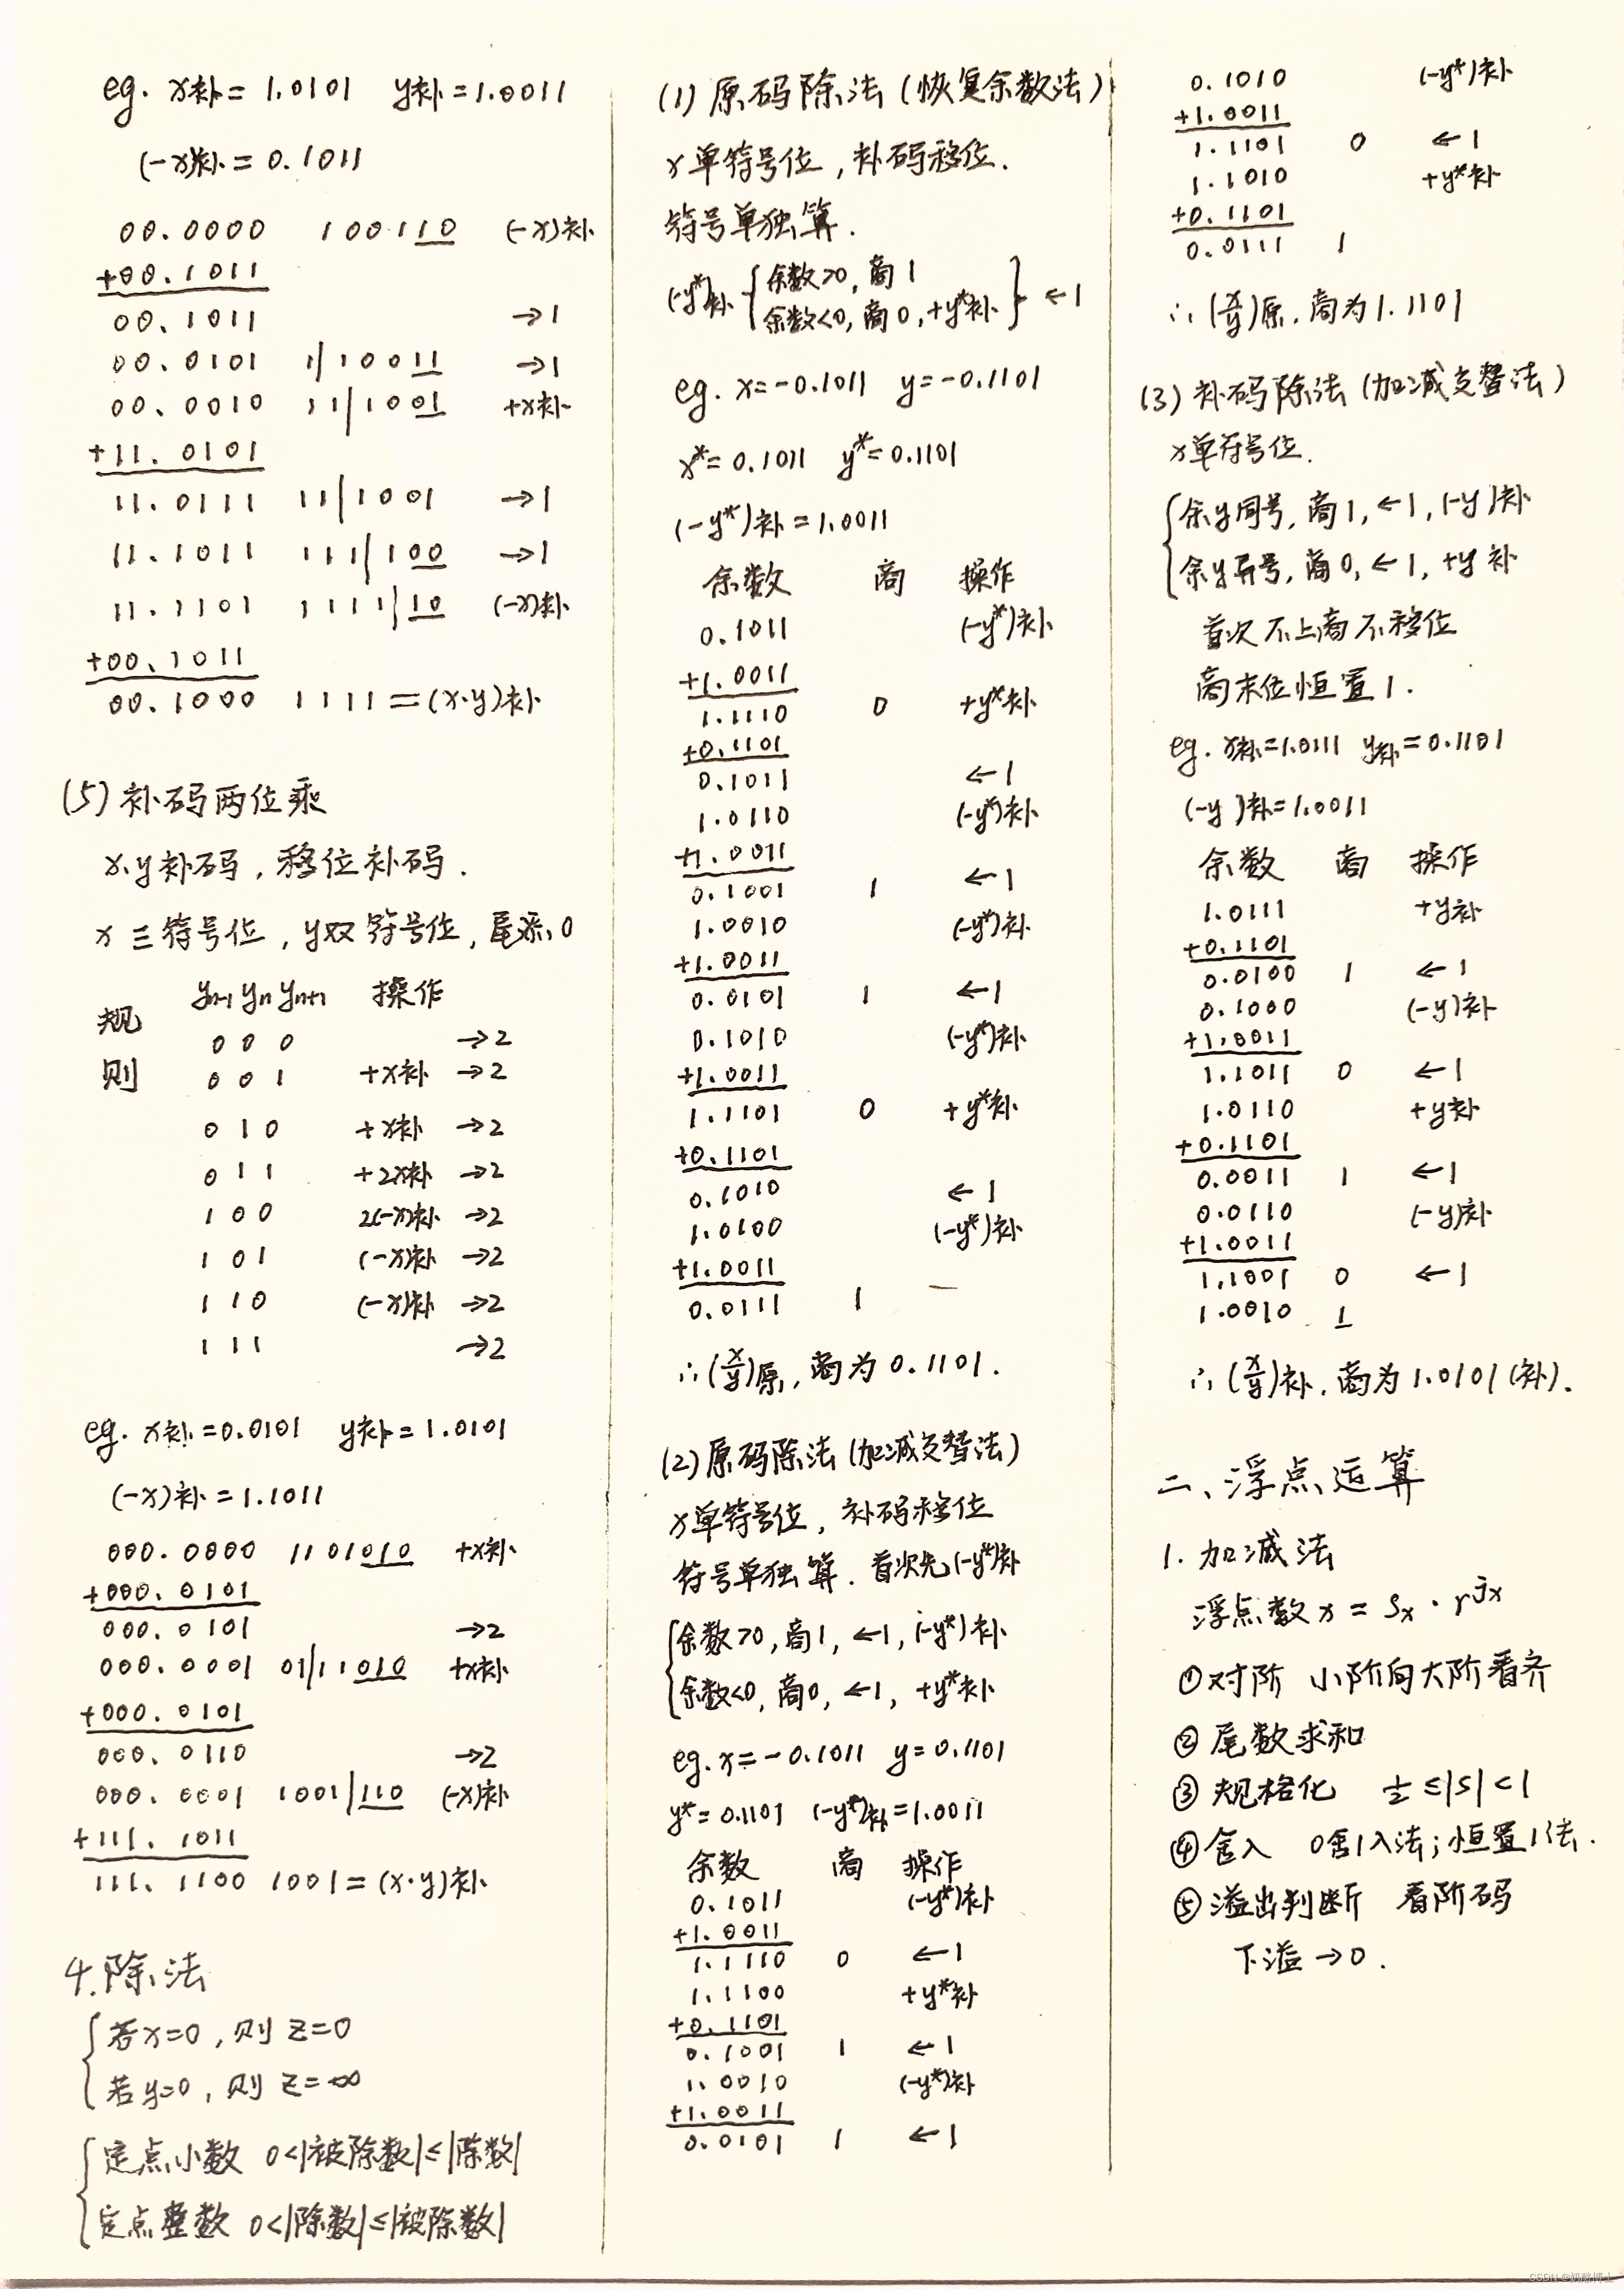 eg. x补 = 1.0101 y补 = 1.0011
(-x)补 = 0.1011
00.0000 100110 (-x)补
+00.1011
00.1011 →1
00.0101 1|10011 →1
00.0010 11|1001 +x补
+11.0101
11.0111 11|1001 →1
11.1011 111|100 →1
11.1101 1111|10 (-x)补
+00.1011
00.1000 1111 = (x·y)补
(5) 补码两位乘
x.y补码, 移位补码.
x三符号位, y双符号位, 尾添0
规则 yn-1 yn yn+1 操作
0 0 0 →2
0 0 1 +x补 →2
0 1 0 +x补 →2
0 1 1 +2x补 →2
1 0 0 2(-x)补 →2
1 0 1 (-x)补 →2
1 1 0 (-x)补 →2
1 1 1 →2
eg. x补 = 0.0101 y补 = 1.0101
(-x)补 = 1.1011
000.0000 1101010 +x补
+000.0101
000.0101 →2
000.0001 01|11010 +x补
+000.0101
000.0110 →2
000.0001 1001|110 (-x)补
+111.1011
111.1100 1001 = (x·y)补
4.除法
若x=0, 则 z=0
若y=0, 则 z=∞
定点小数 0<|被除数|≤|除数|
定点整数 0<|除数|≤|被除数|
(1) 原码除法 (恢复余数法)
x单符号位, 补码移位.
符号单独算.
(-y*)补 { 余数>0, 商1
余数<0, 商0, +y*补 } ←1
eg. x=-0.1011 y=-0.1101
x*=0.1011 y*=0.1101
(-y*)补=1.0011
余数 商 操作
0.1011 (-y*)补
+1.0011
1.1110 0 +y*补
+0.1101
0.1011 ←1
1.0110 (-y*)补
+1.0011
0.1001 1 ←1
1.0010 (-y*)补
+1.0011
0.0101 1 ←1
0.1010 (-y*)补
+1.0011
1.1101 0 +y*补
+0.1101
0.1010 ←1
1.0100 (-y*)补
+1.0011
0.0111 1 —
∴(x/y)原, 商为 0.1101.
(2) 原码除法 (加减交替法)
x单符号位, 补码移位
符号单独算. 首次先(-y*)补
余数>0, 商1, ←1, (-y*)补
余数<0, 商0, ←1, +y*补
eg. x=-0.1011 y=0.1101
y*=0.1101 (-y*)补=1.0011
余数 商 操作
0.1011 (-y*)补
+1.0011
1.1110 0 ←1
1.1100 +y*补
+0.1101
0.1001 1 ←1
1.0010 (-y*)补
+1.0011
0.0101 1 ←1
0.1010 (-y*)补
+1.0011
1.1101 0 ←1
1.1010 +y*补
+0.1101
0.0111 1
∴(x/y)原, 商为1.1101
(3) 补码除法 (加减交替法)
x单符号位.
余y同号, 商1, ←1, (-y)补
余y异号, 商0, ←1, +y补
首次不上商不移位
商末位恒置1.
eg. x补=1.0111 y补=0.1101
(-y)补=1.0011
余数 商 操作
1.0111 +y补
+0.1101
0.0100 1 ←1
0.1000 (-y)补
+1.0011
1.1011 0 ←1
1.0110 +y补
+0.1101
0.0011 1 ←1
0.0110 (-y)补
+1.0011
1.1001 0 ←1
1.0010 1
∴(x/y)补, 商为1.0101(补).
二、浮点运算
1. 加减法
浮点数 x = Sx · r^jx
①对阶 小阶向大阶看齐
②尾数求和
③规格化 ½≤|S|<1
④舍入 0舍1入法; 恒置1法.
⑤溢出判断 看阶码
下溢→0.
CSDN @奶酪博士